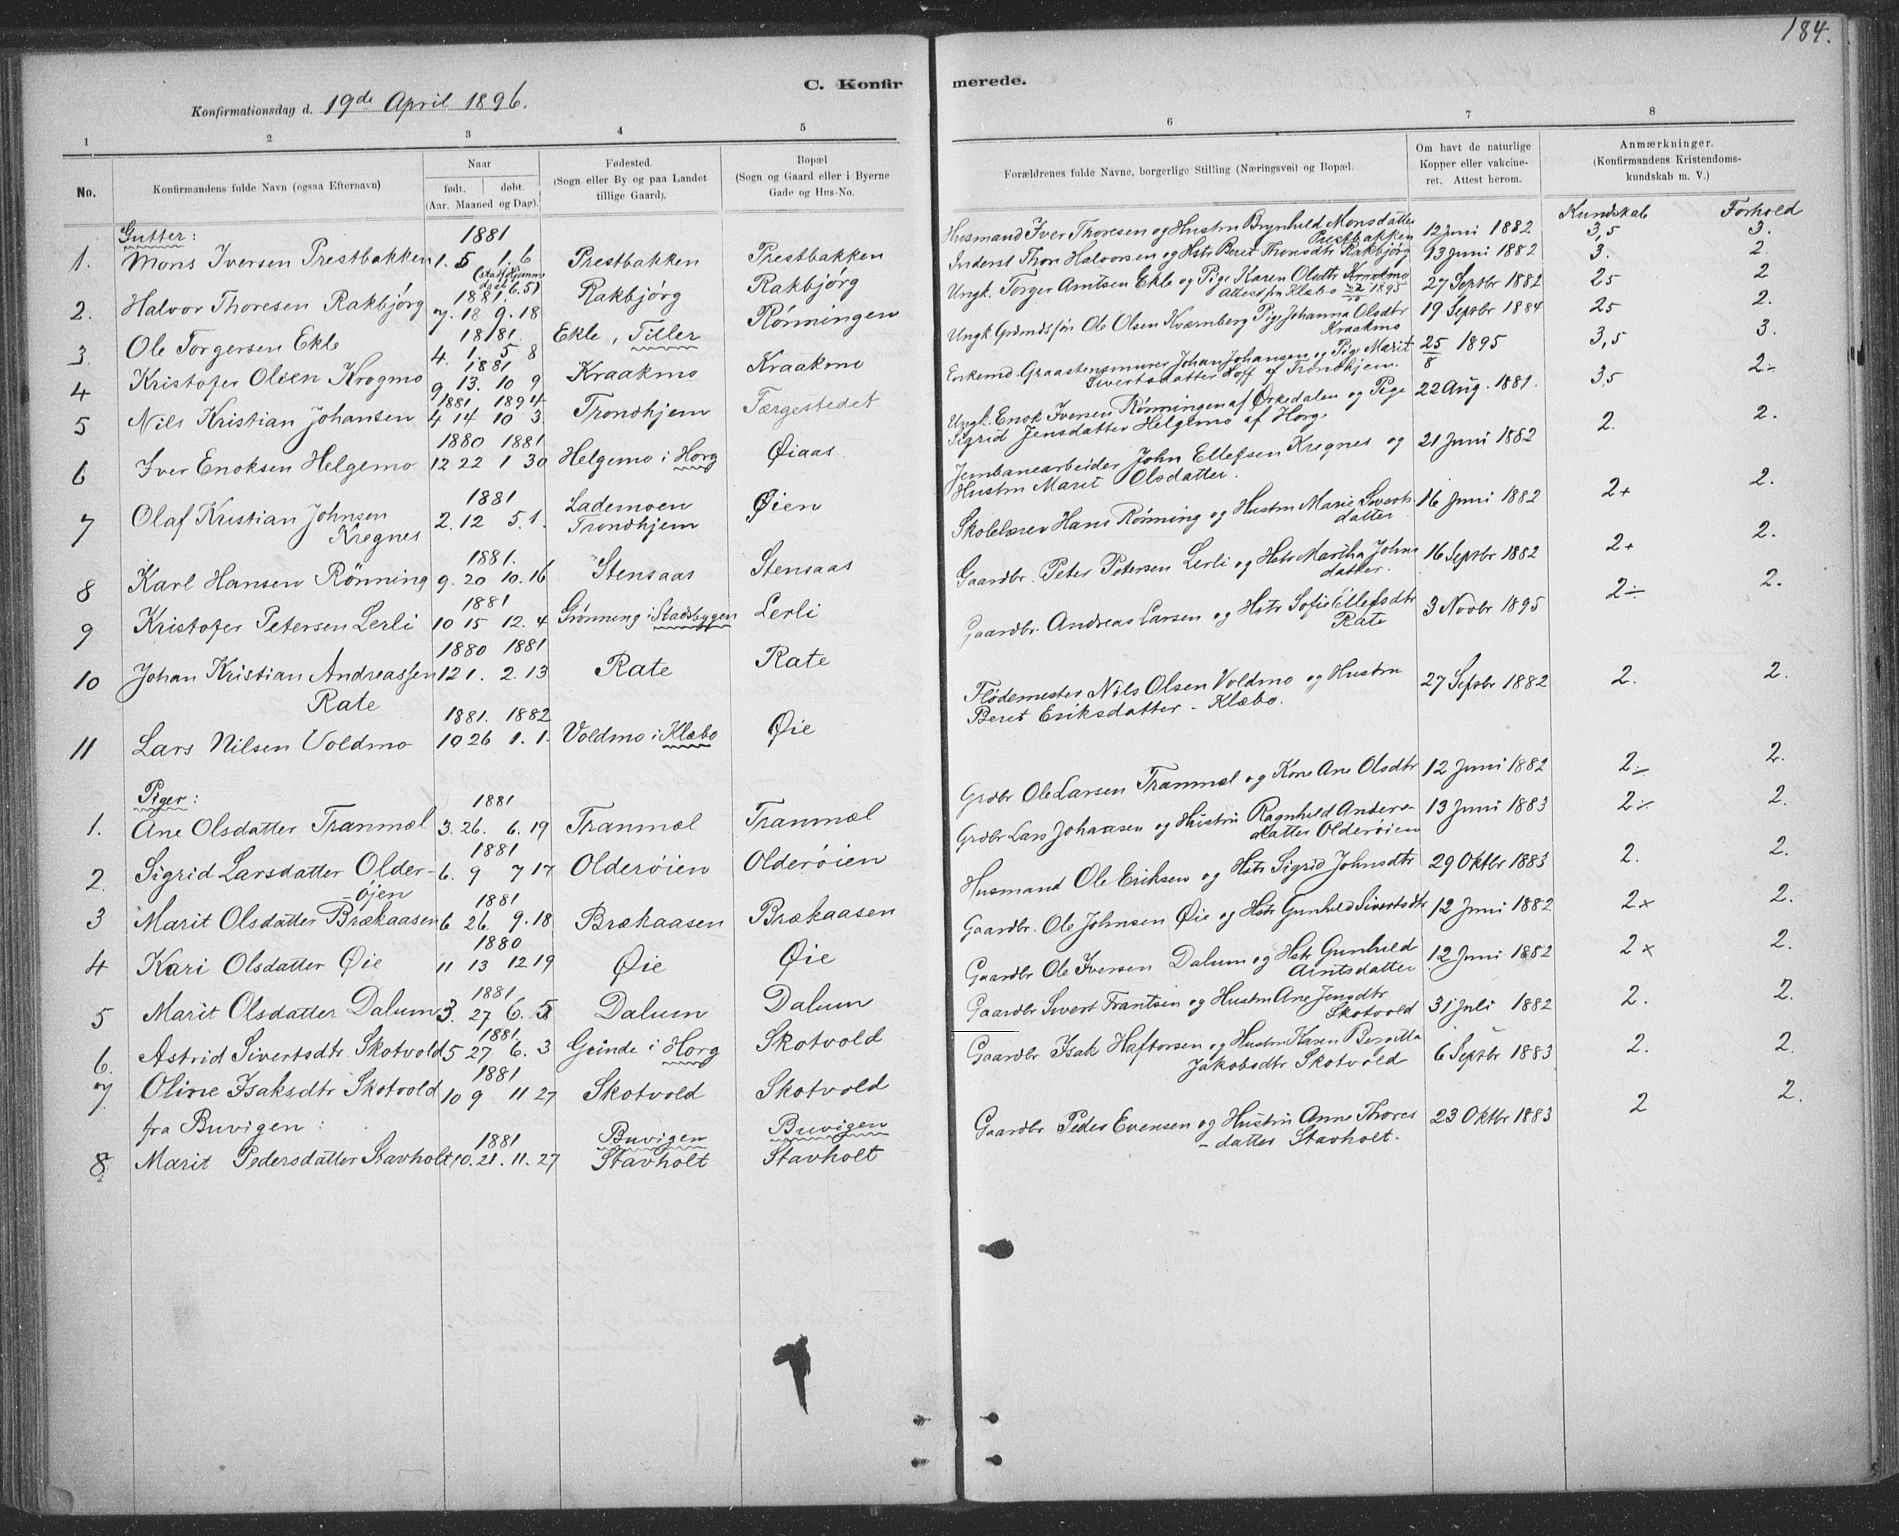 184.
C. Konfirmerede.
Konfirmationsdag d. 19de April 1896.
1 2 3 4 5 6 7 8
No.
Konfirmandens fulde Navn (ogsaa Efternavn)
Naar
født. døbt.
(Aar. Maaned og Dag).
Fødested.
(Sogn eller By og paa Landet
tillige Gaard).
Bopæl
(Sogn og Gaard eller i Byerne
Gade og Hus-No.
Forældrenes fulde Navne, borgerlige Stilling (Næringsvei) og Bopæl.
Om havt de naturlige
Kopper eller vakcine-
ret. Attest herom.
Anmærkninger.
(Konfirmandens Kristendoms-
kundskab m. V.)
Kundskab Forhold
Gutter:
1881
1. Mons Iversen Prestbakken 1. 5 1. 6 Prestbakken Prestbakken
Husmand Iver Thoresen og Hustru Brynhild Monsdatter
Prestbakken 12 Juni 1882 3,5 3.
1881
2. Halvor Thoresen Rakbjørg 7. 18 9. 18 Rakbjørg Rakbjørg
Inderst Thor Halvorsen og Hstr Beret Thorsdtr Rakbjørg 13 Juni 1882 3. 2.
1881.
3 Ole Torgersen Ekle 4. 1. 5 8 Ekle, Tiller Rønningen
Ungk. Torger Arntsen Ekle og Pige Karen Olsdtr Kraakmo
Attest fra Klæbo 1895 27 Septbr 1882 25 2
1881
4 Kristofer Olsen Krogmo 9 13. 10 9 Kraakmo Kraakmo
Ungk. Grdmdssøn Ole Olsen Kværnberg Pige Johanna Olsdtr
Kraakmo 19 Septbr 1884 25 2.
1881 1894
5 Nils Kristian Johansen 4 14 10 3 Trondhjem Færgestedet
Enkemd. Graastensmurer Johan Johansen og Pige Marit
Sivertsdatter Hoff af Trondhjem. 25/8 1895 3,5 3.
1880 1881
6 Iver Enoksen Helgemo 12 22 1 30 Helgemo i Horg Øiaas
Ungk. Enok Iversen Rønningen af Ørkedalen og Pige
Sigrid Jensdatter Helgemo af Horg. 22 Aug. 1881. 3,5 2÷
1881
7 Olaf Kristian Johnsen
Kregnes 2. 12 5. 1. Lademoen
Trondhjem Øien
Jernbanearbeider John Ellefsen Kregnes og
Hustru Maret Olsdatter. 21 Juni 1882 2. 2.
1881.
8 Karl Hansen Rønning 9. 20 10. 16 Stensaas Stensaas
Skolelærer Hans Rønning og Hustru Marie Siverts
datter 16 Juni 1882 2+ 2.
1881
9 Kristofer Petersen Lerli 10 15 12. 4 Grønning i Stadsbygen Lerli
Gaardbr. Peter Petersen Lerli og Hstr Martha Johns
datter. 16 Septbr 1882 2+ 2.
1880 1881
10 Johan Kristian Andreassen
Rate 12 1. 2. 13 Rate Rate
Gaardbr. Andreas Larsen og Hstr Sofie Ellefsdtr
Rate 3 Novbr 1895 2÷ 2.
1881. 1882
11 Lars Nilsen Voldmo 10 26 1. 1. Voldmo i Klæbo Øie
Flødemester Nils Olsen Voldmo og Hustru
Beret Eriksdatter - Klæbo. 27 Septbr 1882 2. 2.
Piger:
1881
1. Ane Olsdatter Tranmæl 3. 26. 6. 19 Tranmæl Tranmæl
Grdbr Ole Larsen Tranmæl og Kone Ane Olsdtr 12 Juni 1882 2÷ 2.
1881
2. Sigrid Larsdatter Older-
øjen 6. 9 7 17 Olderøien Olderøien
Grdbr Lars Johansen og Hustru Ragnhild Anders-
datter Olderøien 13 Juni 1883 2÷ 2.
1881
3 Marit Olsdatter Brækaasen 6 26 9. 18 Brækaasen Brækaasen
Husmand Ole Eriksen og Hstr Sigrid Johnsdtr 29 Oktbr 1883 2. 2.
1880
4 Kari Olsdatter Øie 11 13 12 19 Øie Øie
Gaardbr. Ole Johnsen Øie og Hstr Gunhild Sivertsdtr 12 Juni 1882 2× 2.
1881
5 Marit Olsdatter Dalum 3. 27 6. 5 Dalum Dalum
Gaardbr Ole Iversen Dalum og Hstr Gunhild
Arntsdatter 12 Juni 1882 2× 2.
1881.
6. Astrid Sivertsdtr Skotvold 5 27 6. 3 Grinde i Horg Skotvold
Gaardbr Sivert Frantsen og Hustru Ane Jensdtr
Skotvold 31 Juli 1882 2. 2.
1881
7 Oline Isaksdtr Skotvold 10 9 11 27 Skotvold Skotvold
Gaardbr Isak Haftorsen og Hustru Karen Bergitta
Jakobsdtr Skotvold 6 Septbr 1883 2. 2.
fra Buvigen:
1881 Buvigen Buvigen
8 Marit Pedersdatter Stavholt 10. 21. 11. 27 Stavholt Stavholt
Gaardbr Peder Evensen og Hustru Anne Thores
-datter Stavholt. 23 Oktbr 1883 2 2.